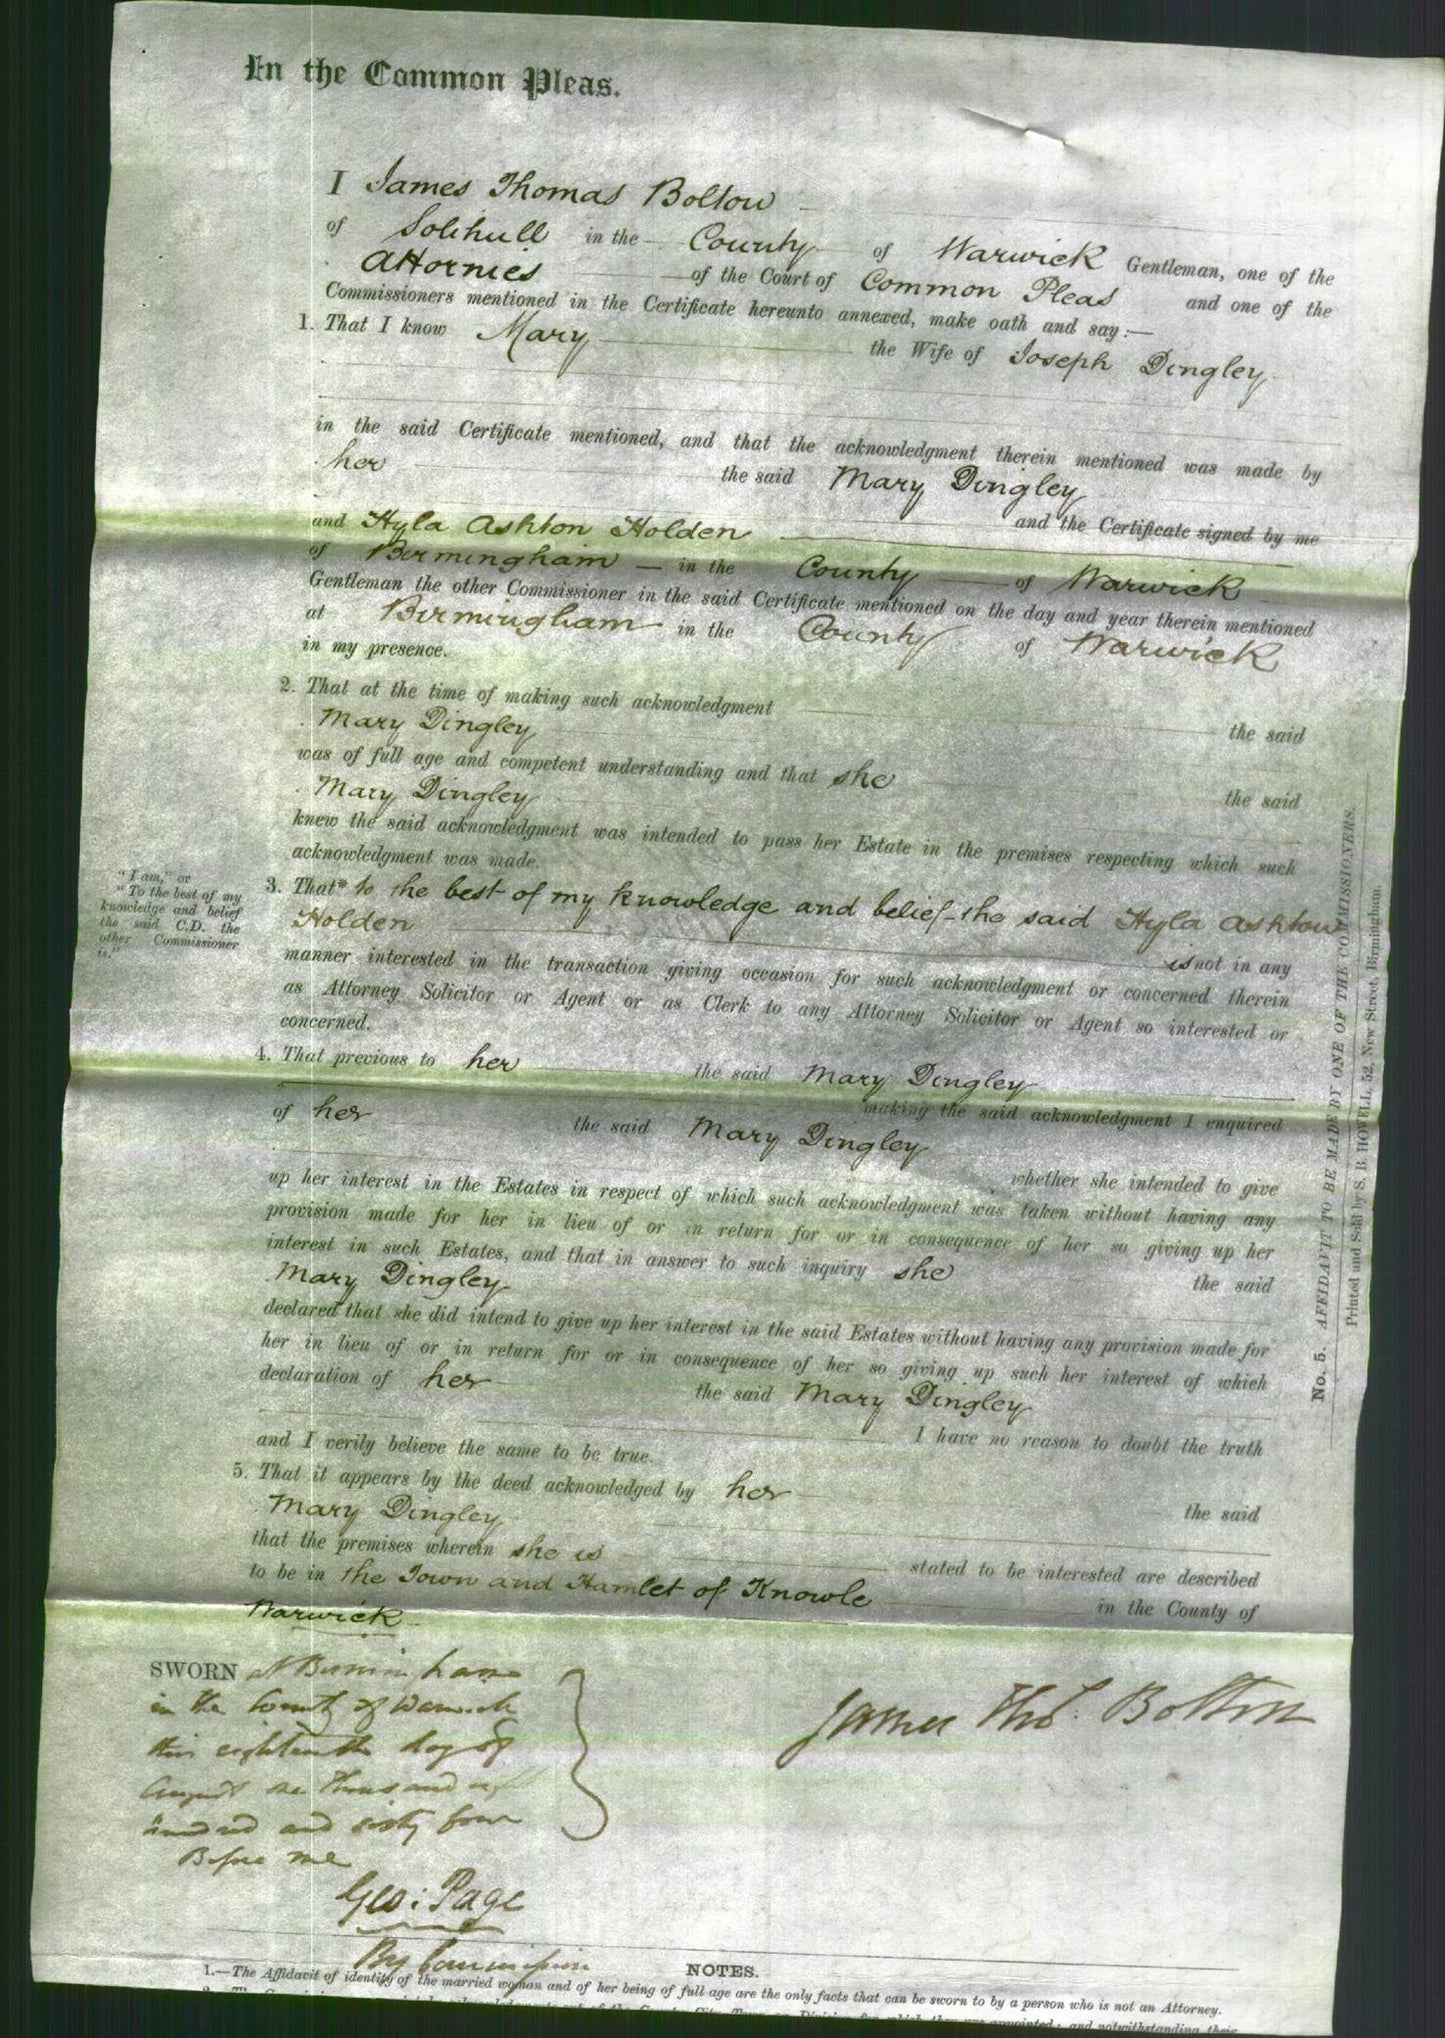 In the Common Pleas.
I James Thomas Bolton
of Solihull in the County of Warwick Gentleman, one of the
Attornies of the Court of Common Pleas and one of the
Commissioners mentioned in the Certificate hereunto annexed, make oath and say:—
1. That I know Mary the Wife of Joseph Dingley
in the said Certificate mentioned, and that the acknowledgment therein mentioned was made by
her the said Mary Dingley
and Hyla Ashton Holden and the Certificate signed by me
of Birmingham in the County of Warwick
Gentleman the other Commissioner in the said Certificate mentioned on the day and year therein mentioned
at Birmingham in the County of Warwick
in my presence.
2. That at the time of making such acknowledgment the said
Mary Dingley
was of full age and competent understanding and that she the said
Mary Dingley
knew the said acknowledgment was intended to pass her Estate in the premises respecting which such
acknowledgment was made.
"I am," or
"To the best of my
knowledge and belief
the said C.D. the
other Commissioner
is."
3. That* to the best of my knowledge and belief the said Hyla Ashton
Holden is not in any
manner interested in the transaction giving occasion for such acknowledgment or concerned therein
as Attorney Solicitor or Agent or as Clerk to any Attorney Solicitor or Agent so interested or
concerned.
4. That previous to her the said Mary Dingley
making the said acknowledgment I enquired
of her the said Mary Dingley
whether she intended to give
up her interest in the Estates in respect of which such acknowledgment was taken without having any
provision made for her in lieu of or in return for or in consequence of her so giving up her
interest in such Estates, and that in answer to such inquiry she the said
Mary Dingley
declared that she did intend to give up her interest in the said Estates without having any provision made for
her in lieu of or in return for or in consequence of her so giving up such her interest of which
declaration of her the said Mary Dingley
I have no reason to doubt the truth
and I verily believe the same to be true.
5. That it appears by the deed acknowledged by her the said
Mary Dingley
that the premises wherein she is stated to be interested are described
to be in the Town and Hamlet of Knowle in the County of
Warwick
SWORN at Birmingham
in the County of Warwick
this eighteenth day of
August one thousand eight
hundred and sixty four
Before me
Geo: Page
By Commission
James Thos. Bolton
No. 5. AFFIDAVIT TO BE MADE BY ONE OF THE COMMISSIONERS.
Printed and Sold by S. B. HOWELL, 52, New Street, Birmingham.
NOTES.
1.—The Affidavit of identity of the married woman and of her being of full age are the only facts that can be sworn to by a person who is not an Attorney.